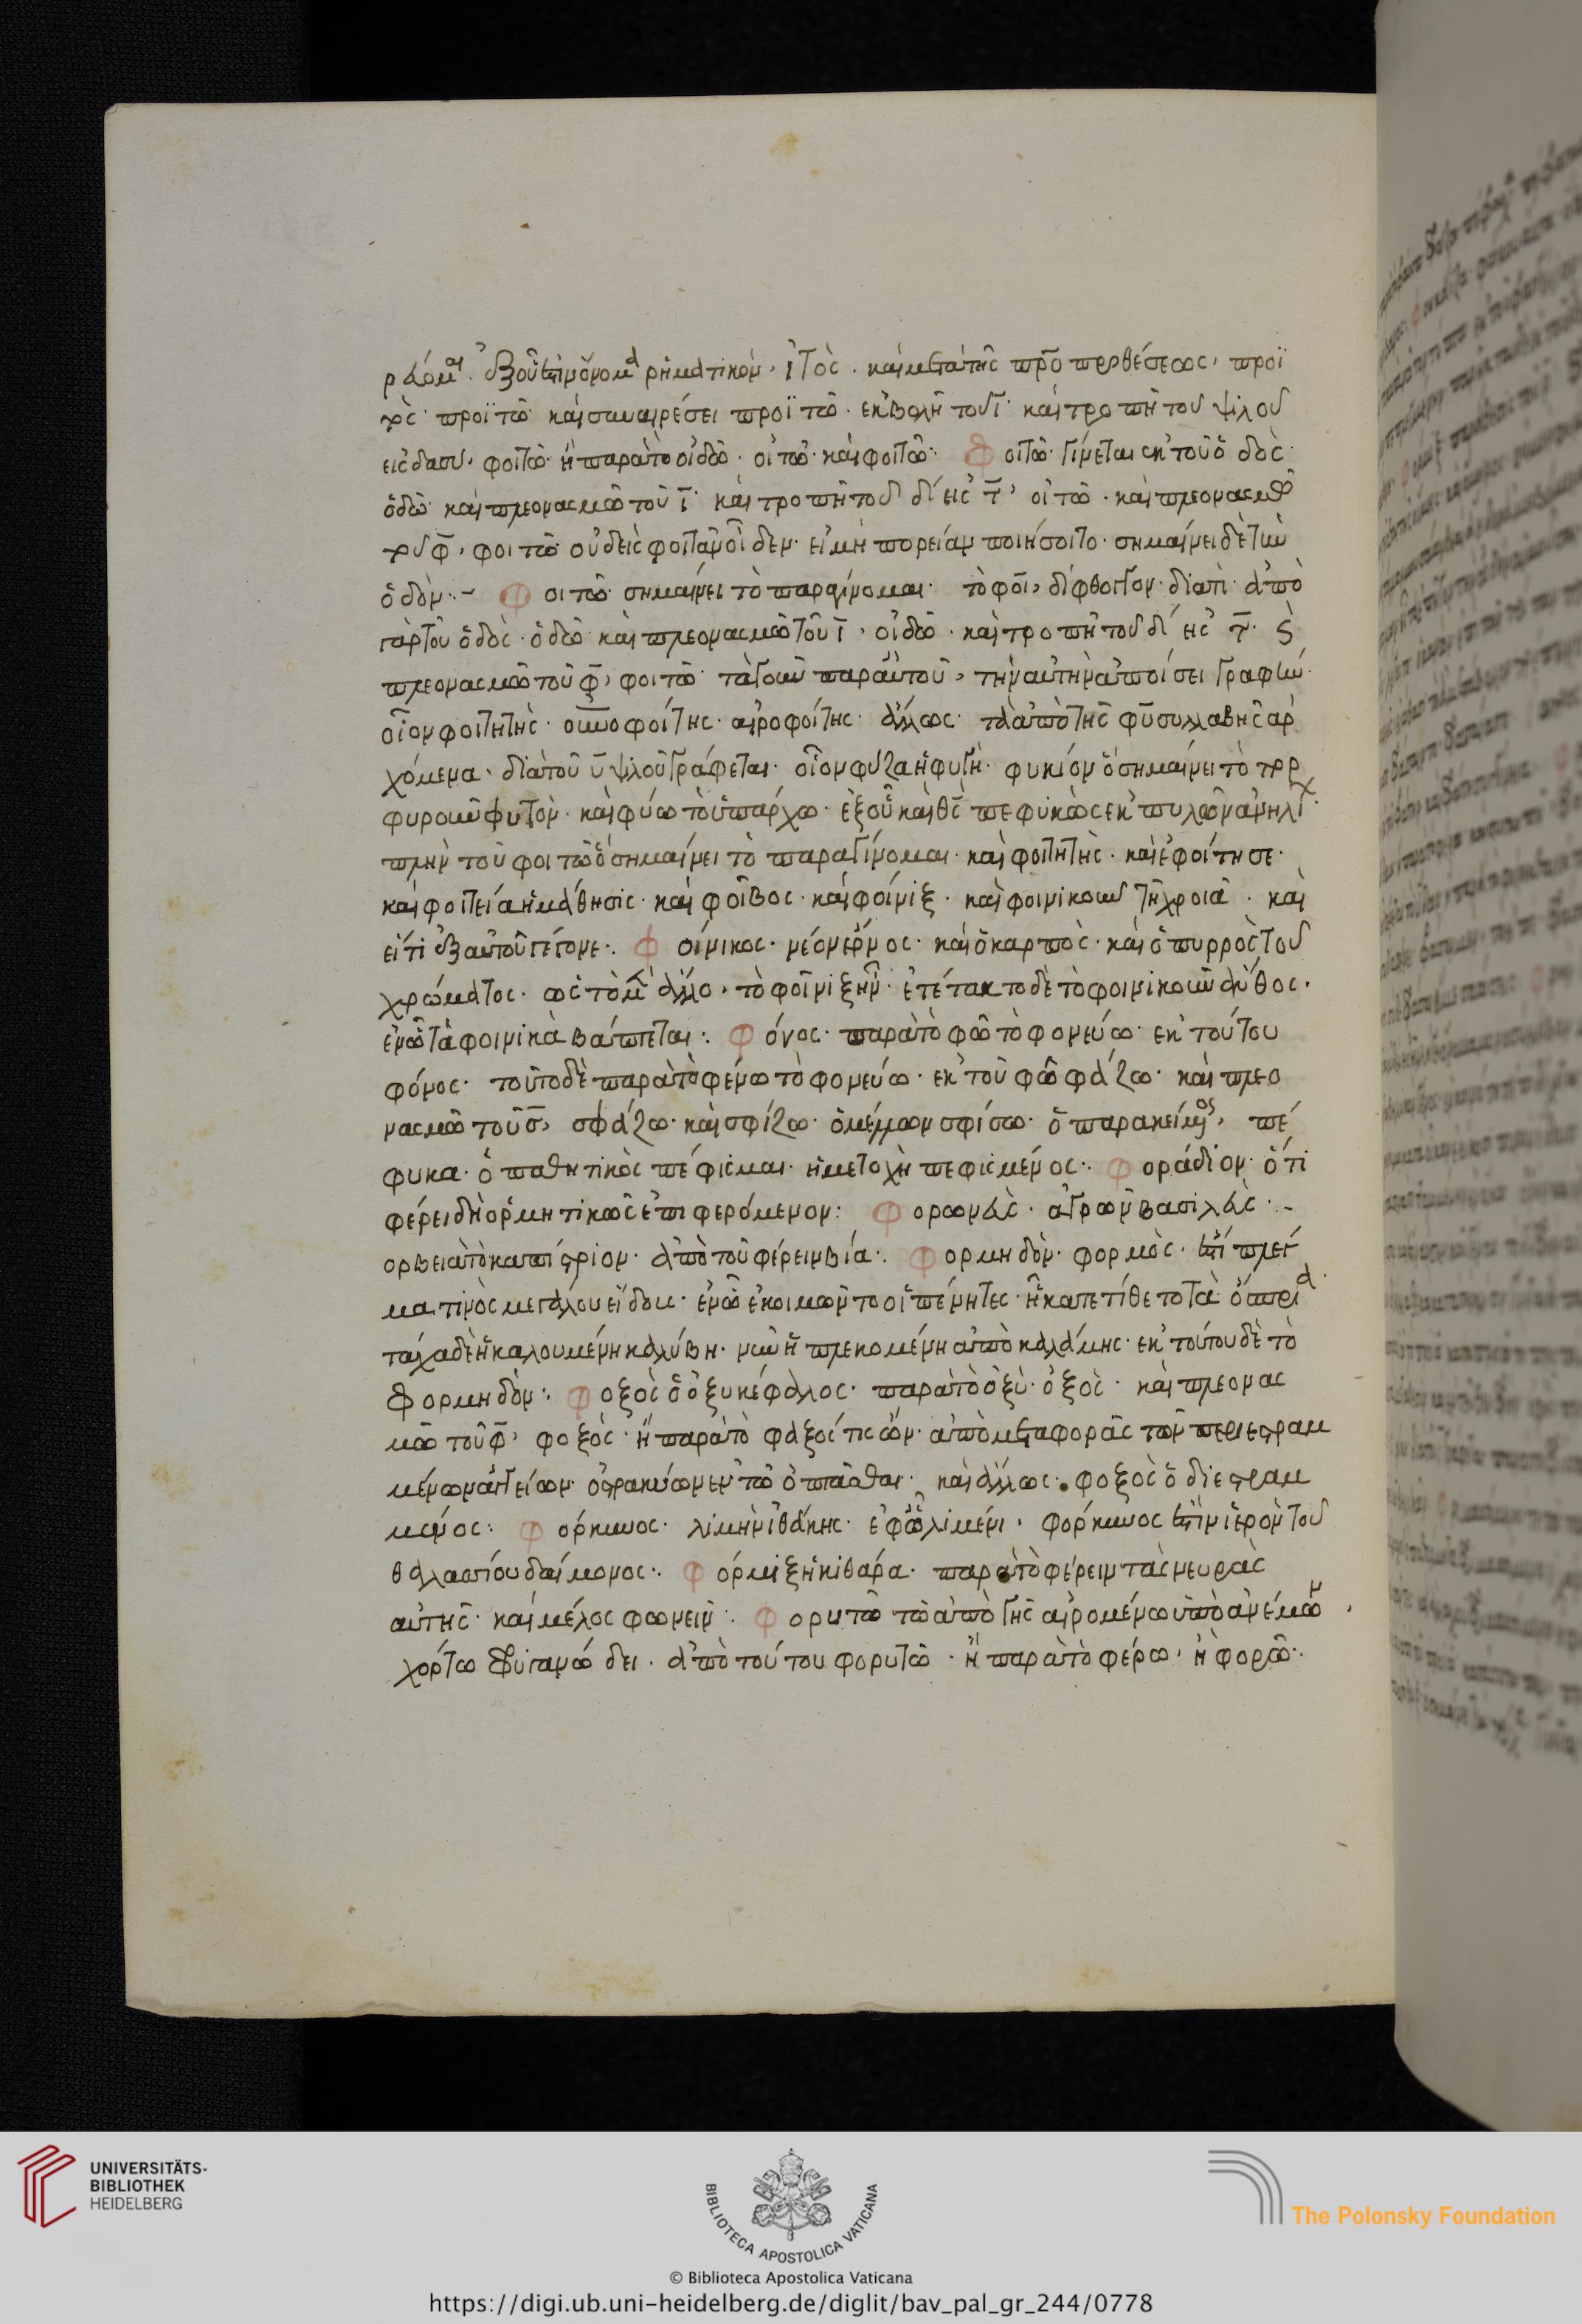 ρεύομαι. ἐξ οὗ ἐπὶ ὄνομα ῥηματικὸν, ἰτὸς. καὶ μετὰ τῆς πρὸ προθέσεως, προϊ
τὸς. προϊτῶ καὶ συναιρέσει προϊτῶ. ἐκβολῇ τοῦ ῑ καὶ τροπῇ τοῦ ψιλοῦ
εἰς δασὺ, φοιτῶ. ἢ παρὰ τὸ οἰδῶ. οἰτῶ. καὶ φοιτῶ: Φοιτῶ. γίνεται ἐκ τοῦ ὁδὸς.
ὁδῶ. καὶ πλεονασμῶ τοῦ ῑ καὶ τροπῇ τοῦ δ εἰς τ, οἰτῶ. καὶ πλεονασμῶ
τοῦ φ, φοιτῶ. οὐδεὶς φοιτᾶν οἶδεν. εἰ μὴ πορείαν ποιήσοιτο. σημαίνει δὲ τὴν
ὁδὸν:- Φοιτῶ σημαίνει τὸ παραγίνομαι. τὸ φοι, δίφθογγον. διατί. ἀπὸ
γὰρ τοῦ ὁδὸς. ὁδῶ καὶ πλεονασμῶ τοῦ ῑ, οἰδῶ. καὶ τροπῇ τοῦ δ εἰς τ. καὶ
πλεονασμῶ τοῦ φ, φοιτῶ. τὰ γοῦν παρ' αὐτοῦ, τὴν αὐτὴν ἀποίσει γραφὴν.
οἷον φοιτητὴς. οἰνοφοίτης. ἀεροφοίτης. ἄλλως. τὰ ἀπὸ τῆς φυ συλλαβῆς ἀρ
χόμενα, διὰ τοῦ υ ψιλοῦ γράφεται. οἷον φύζα ἡ φυγὴ. φυκίον ὃ σημαίνει τὸ πορ
φυροῦν φυτὸν. καὶ φύω τὸ ὑπάρχω. ἐξ οὗ καὶ θς πεφυκὼς ἐκ πυλῶν ἀνηλι
πλὴν τοῦ φοιτῶ ὃ σημαίνει τὸ παραγίνομαι. καὶ φοιτητὴς. καὶ ἐφοίτησε.
καὶ φοιτεία ἡ μάθησις. καὶ φοῖβος. καὶ φοίνιξ. καὶ φοινικοῦν τῇ χροιᾶ. καὶ
εἴ τι ἐξ αὐτοῦ γέγονε: Φοίνικος. καὶ ὁ καρπὸς. καὶ ὁ πυρρὸς τοῦ
χρώματος. ὡς τὸ μὲν ἄλλο, τὸ φοῖνιξ ἦν. ἐτέτακτο δὲ τὸ φοινικοῦν ἄνθος.
ἐν ᾧ τὰ φοινικὰ βάπτεται: Φόνος. παρὰ τὸ φῶ τὸ φονεύω. ἐκ τούτου
φόνος. τοῦτο δὲ παρὰ τὸ φένω τὸ φονεύω. ἐκ τοῦ φῶ φάζω. καὶ πλεο
νασμῶ τοῦ σ, σφάζω. καὶ σφίζω. ὁ μέλλων σφίσω. ὁ παρακείμενος, πέ
φυκα. ὁ παθητικὸς πέφισμαι. ἡ μετοχὴ πεφισμένος: Φοράδιον. ὅτι
φέρει δὴ ὁρμητικῶς ἐπιφερόμενον: Φορωνεὺς. ἀγρῶν βασιλεὺς:-
ορβειὰ τὸ καπίστριον. ἀπὸ τοῦ φέρειν βία: Φορμηδὸν. φορμὸς. ἐπὶ πλέγ
ματινος μεγάλου εἴδους. ἐν ᾧ ἐκοιμῶντο οἱ πένητες. ἢ κατετίθετο τὰ ὄσπρια.
τάχα δὲ ἡ καλουμένη καλύβη. νῦν ἡ πλεκομένη ἀπὸ καλάμης. ἐκ τούτου δὲ τὸ
φορμηδὸν: Φοξὸς ὁ ὀξυκέφαλος. παρὰ τὸ ὀξὺ. ὀξὸς. καὶ πλεονασ
μῶ τοῦ φ, φοξὸς. ἢ παρὰ τὸ φαξός τις ὢν. ἀπὸ μεταφορᾶς τῶν περιεστραμ
μένων ἀγγείων ὀστρακίνων ἐν τῶ ὀπτᾶσθαι. καὶ ἄλλως. φοξὸς ὁ διεστραμ
μένος: Φόρκυνος. λιμὴν ἰθάκης. ἐφ' ᾧ λιμένι. φόρκυνος ἐστὶν ἱερὸν τοῦ
θαλασσίου δαίμονος: Φόρμιξ ἡ κιθάρα. παρὰ τὸ φέρειν τὰς νευρὰς
αὐτῆς. καὶ μέλος φωνεῖν: Φορυτῶ τῶ ἀπὸ γῆς αἰρομένω ὑπὸ ἀνέμων,
χόρτω φρυγανώδει. ἀπὸ τούτου φορυτῶ. ἢ παρὰ τὸ φέρω, ἢ φορῶ:
UNIVERSITÄTS-
BIBLIOTHEK
HEIDELBERG
BIBLIOTECA APOSTOLICA VATICANA
The Polonsky Foundation
© Biblioteca Apostolica Vaticana
https://digi.ub.uni-heidelberg.de/diglit/bav_pal_gr_244/0778